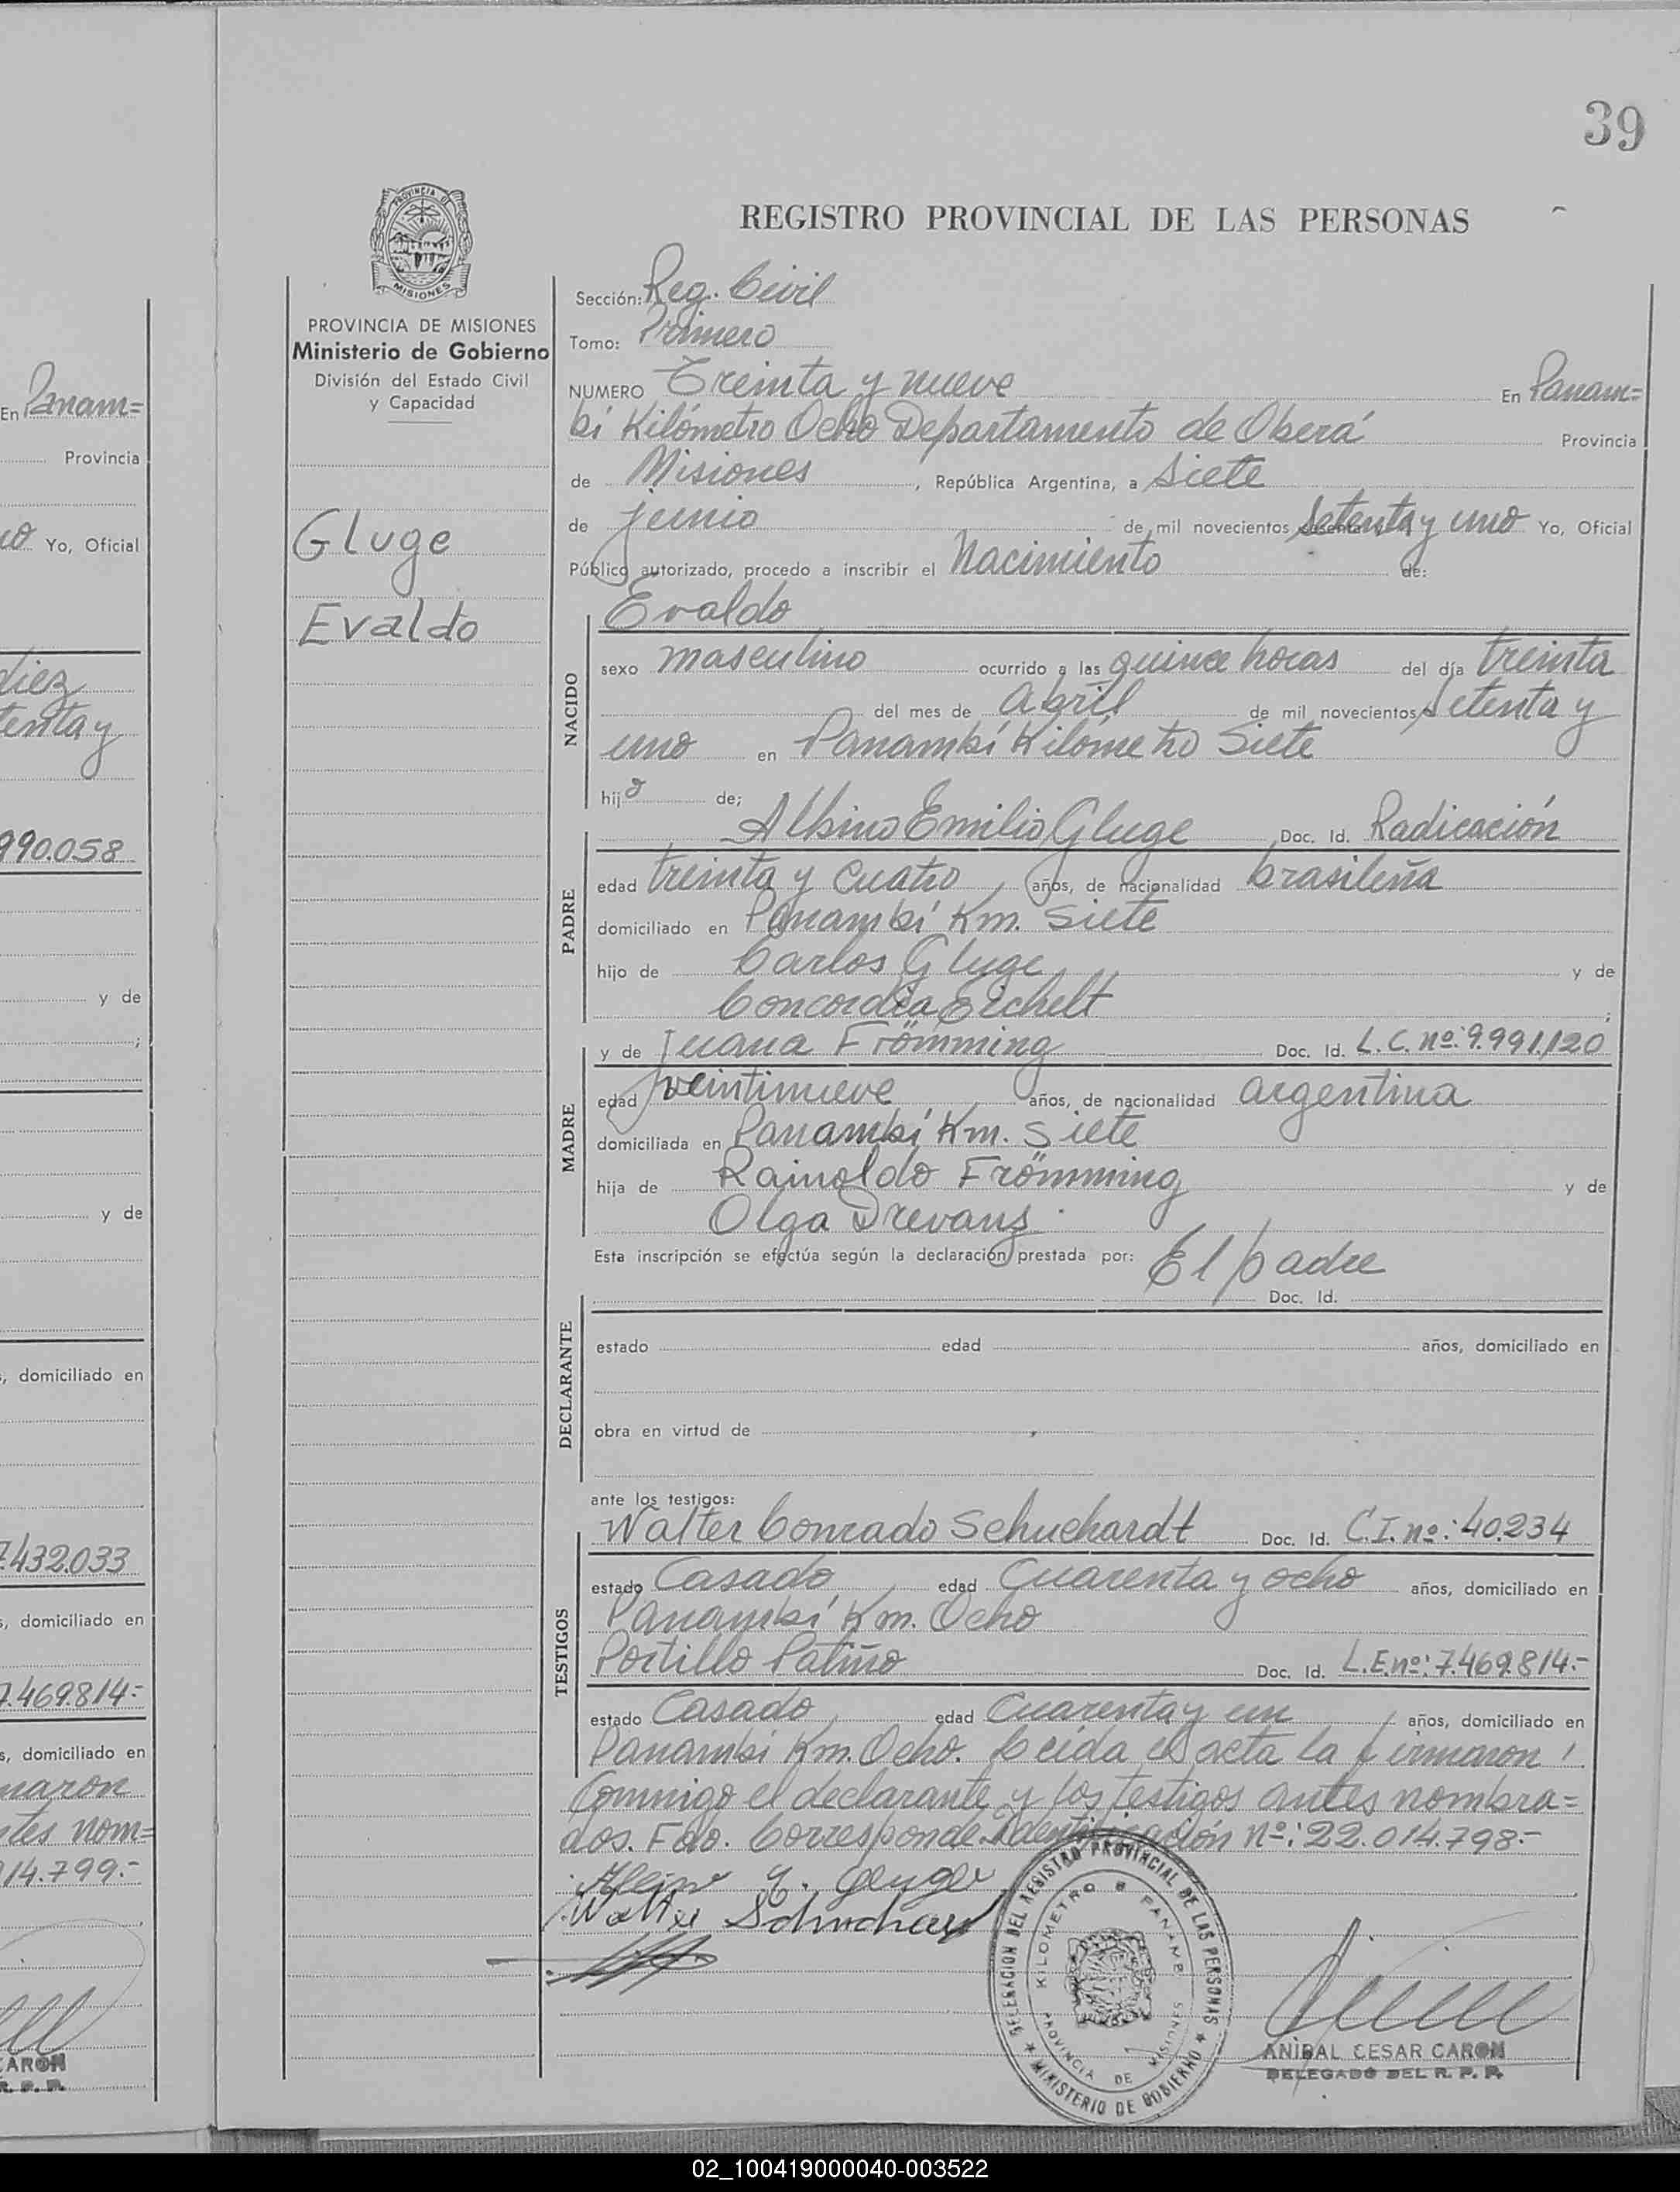 39
REGISTRO PROVINCIAL DE LAS PERSONAS
PROVINCIA DE
MISIONES
PROVINCIA DE MISIONES
Ministerio de Gobierno
División del Estado Civil
y Capacidad
Gluge
Evaldo
Sección: Reg. Civil
Tomo: Primero
NUMERO Treinta y nueve En Panam=
bí Kilómetro Ocho Departamento de Oberá Provincia
de Misiones, República Argentina, a Siete
de junio de mil novecientos Setenta y uno Yo, Oficial
Público autorizado, procedo a inscribir el Nacimiento de:
NACIDO
Evaldo
sexo masculino ocurrido a las quince horas del día treinta
del mes de abril de mil novecientos, Setenta y
uno en Panambí Kilómetro Siete
hijo de;
PADRE
Albino Emilio Gluge Doc. Id. Radicación
edad treinta y cuatro, años, de nacionalidad brasileña
domiciliado en Panambí Km. Siete
hijo de Carlos Gluge y de
Concordia Eichelt ;
MADRE
y de Juana Frömming Doc. Id. L.C. nº: 9.991.120
edad veintinueve años, de nacionalidad argentina
domiciliada en Panambí Km. Siete
hija de Rainoldo Frömming y de
Olga Drevans
Esta inscripción se efectúa según la declaración prestada por: El padre
DECLARANTE
Doc. Id.
estado edad años, domiciliado en
obra en virtud de
ante los testigos:
TESTIGOS
Walter Conrado Schuchardt Doc. Id. C.I. nº: 40.234
estado Casado, edad Cuarenta y ocho años, domiciliado en
Panambí Km. Ocho
Portillo Patiño Doc. Id. L.E. nº: 7.469.814.-
estado Casado, edad Cuarenta y un años, domiciliado en
Panambí Km. Ocho. Leida el acta la firmaron
Conmigo el declarante y los testigos antes nombra=
dos. Fdo. Corresponde Identificación Nº: 22.014.798.-
Walter Schuchard
DELEGACION DEL REGISTRO PROVINCIAL DE LAS PERSONAS
KILOMETRO 8 PANAMBI
PROVINCIA DE MISIONES
★ MINISTERIO DE GOBIERNO ★
ANIBAL CESAR CARON
DELEGADO DEL R. P. P.
En Panam=
Provincia
Yo, Oficial
diez
tenta y
990.058
y de
;
y de
, domiciliado en
7.432.033
s, domiciliado en
7.469.814.-
s, domiciliado en
maron
tes nom=
14.799.-
CARON
R. P. P.
02_100419000040-003522